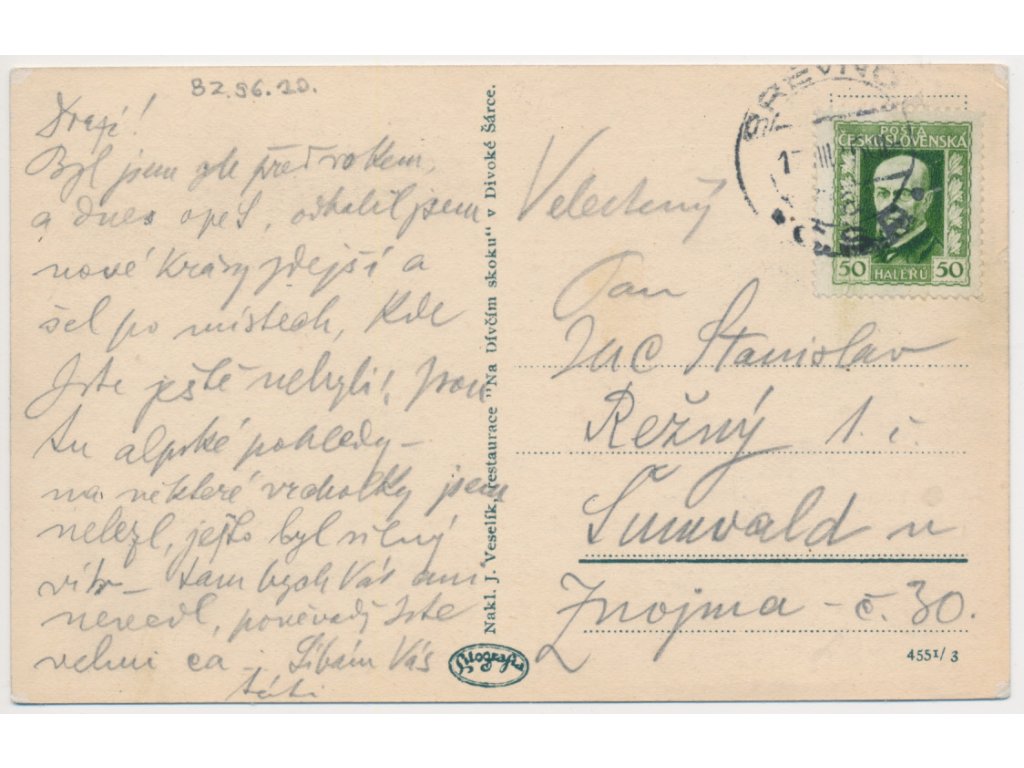 82.96.20.
Drazí!
Byl jsem zde před rokem,
a dnes opět, odhalil jsem
nové krásy zdejší a
šel po místech, kde
Jste ještě nebyli! Jsou
tu alpské pohledy –
na některé vrcholky jsem
nelezl, ježto byl silný
vítr – tam bych Vás ani
nevedl, poněvadž Jste
velmi ca –. Líbám Vás
táti
Nakl. J. Veselík, restaurace "Na Dívčím skoku" v Divoké Šárce.
Litografia
BŘEVNOV
ČSR
POŠTA
ČESKOSLOVENSKÁ
50 HALÉŘŮ 50
Velectěný
Pan
JUC Stanislav
Režný t. č.
Šumvald u
Znojma – č. 30.
455I/3